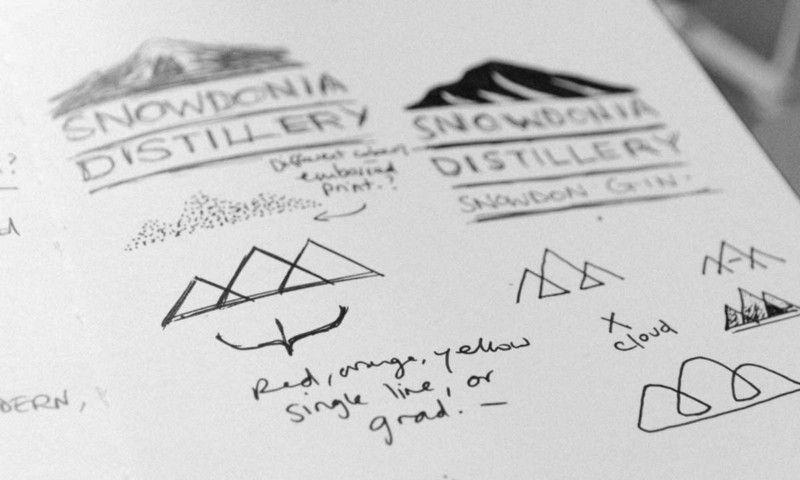 SNOWDONIA
DISTILLERY
SNOWDONIA
DISTILLERY
SNOWDON GIN.
Different
embossed
print.?
Red, orange, yellow
single line, or
grad. —
X
cloud
DERN,